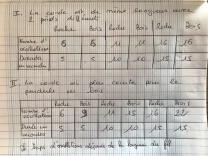 I. La corde est de même longueur avec
2 poids différents
Roche Bois Roche Bois Roche Bois
Nombre d'oscillations 6 6 11 11 16 16
Durée en secondes 5 5 10 10 15 15
II. La corde est plus courte pour le
pendule en bois
Roche Bois Roche Bois Roche Bois
Nombre d'oscillations 6 9 11 15 16 22
Durée en secondes 5 5 10 10 15 15
d'oscillations dépend de la longueur du fil